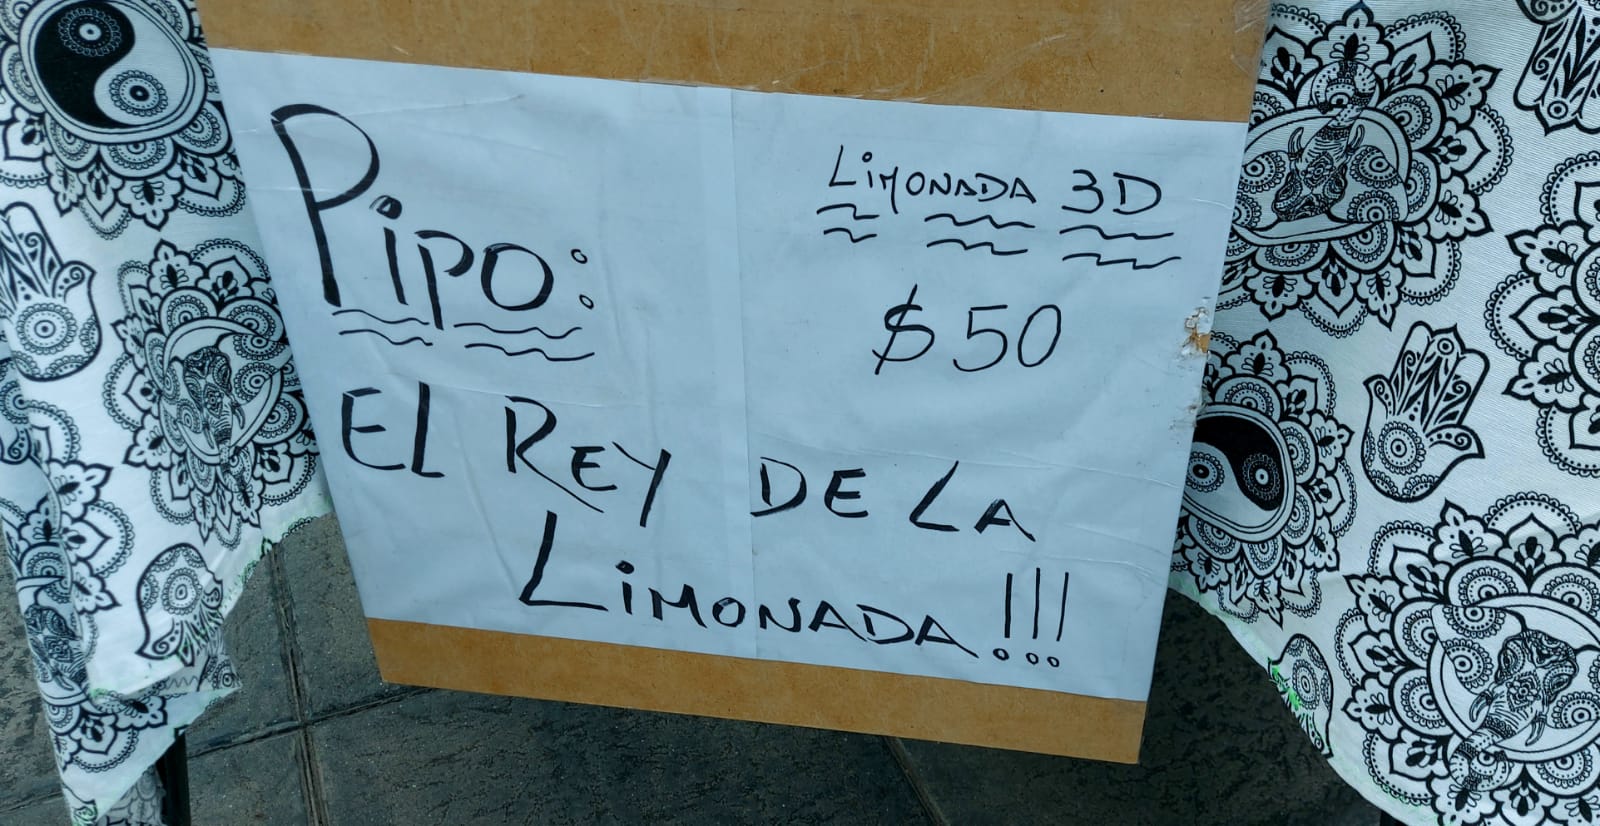 Pipo:
LiMONADA 3D
$50
EL REY DE LA
LiMONADA!!!